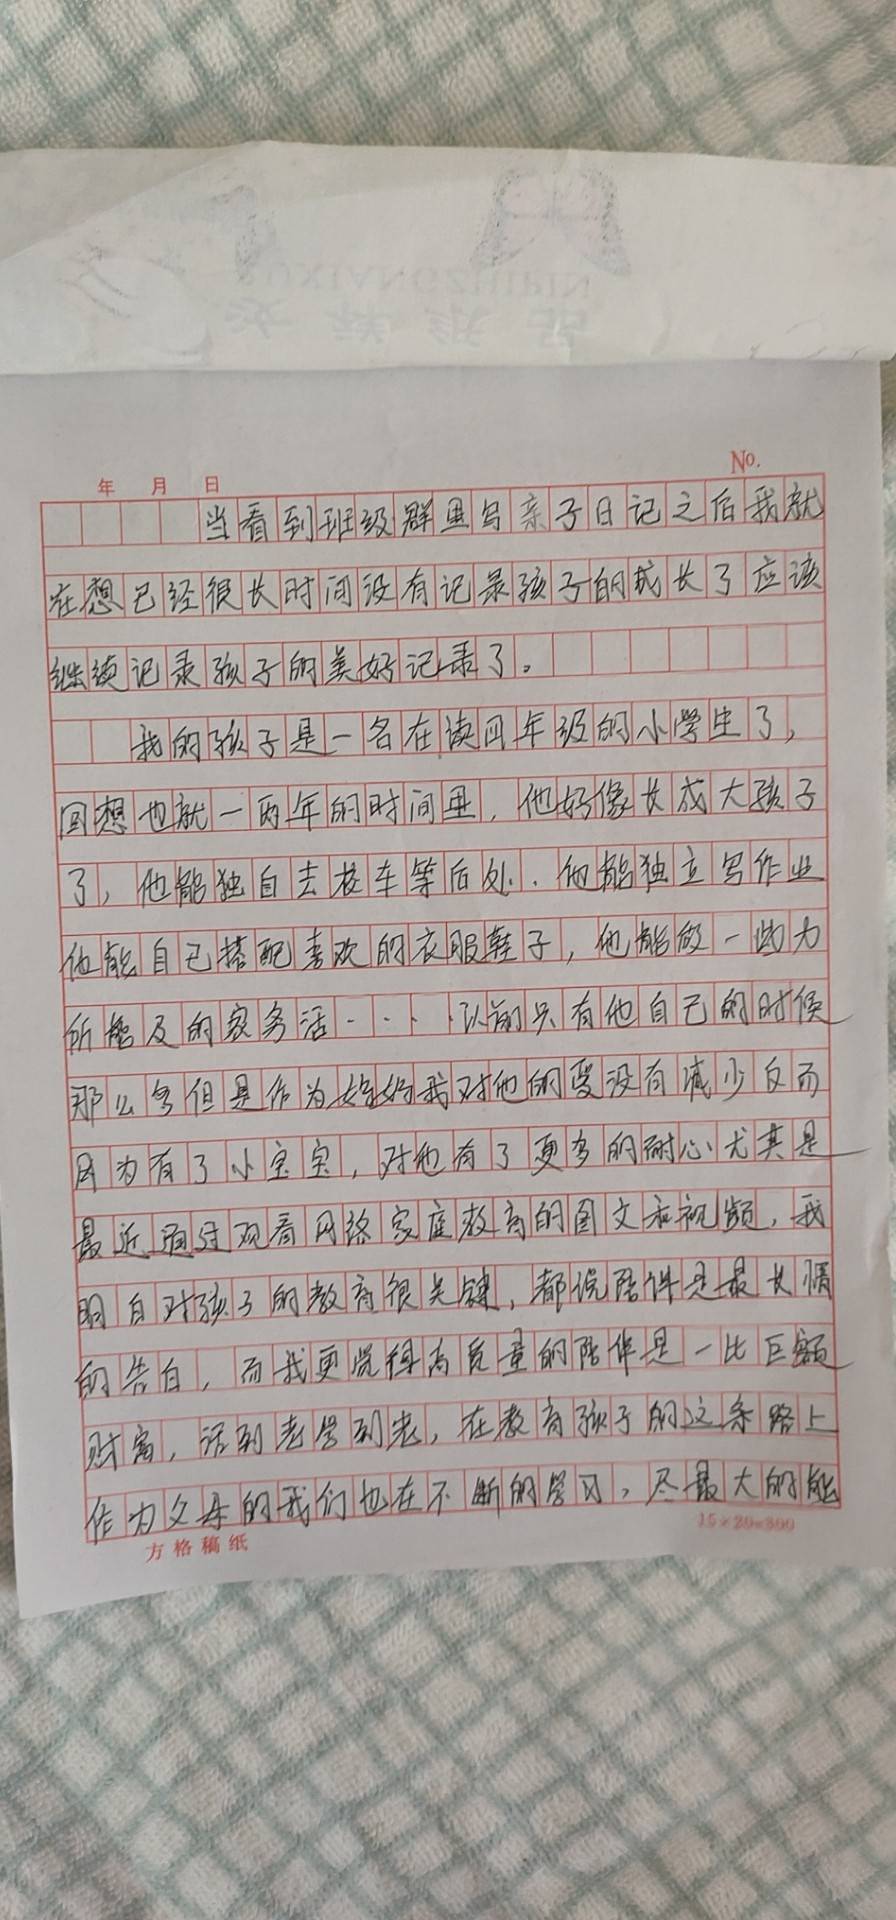 XIANGZHIPIN
年 月 日
No.
当看到班级群里写亲子日记之后我就
在想已经很长时间没有记录孩子的成长了应该
继续记录孩子的美好记录了。
我的孩子是一名在读四年级的小学生了，
回想也就一两年的时间里，他好像长成大孩子
了，他能独自去校车等后处．他能独立写作业
他能自己搭配喜欢的衣服鞋子，他能做一些力
所能及的家务活····以前只有他自己的时候
那么多但是作为妈妈我对他的爱没有减少反而
因为有了小宝宝，对他有了更多的耐心尤其是
最近通过观看网络家庭教育的图文和视频，我
明白对孩子的教育很关键，都说陪伴是最长情
的告白，而我更觉得高质量的陪伴是一比巨额
财富，活到老学到老，在教育孩子的这条路上
作为父母的我们也在不断的学习，尽最大的能
方格稿纸
15×20=300